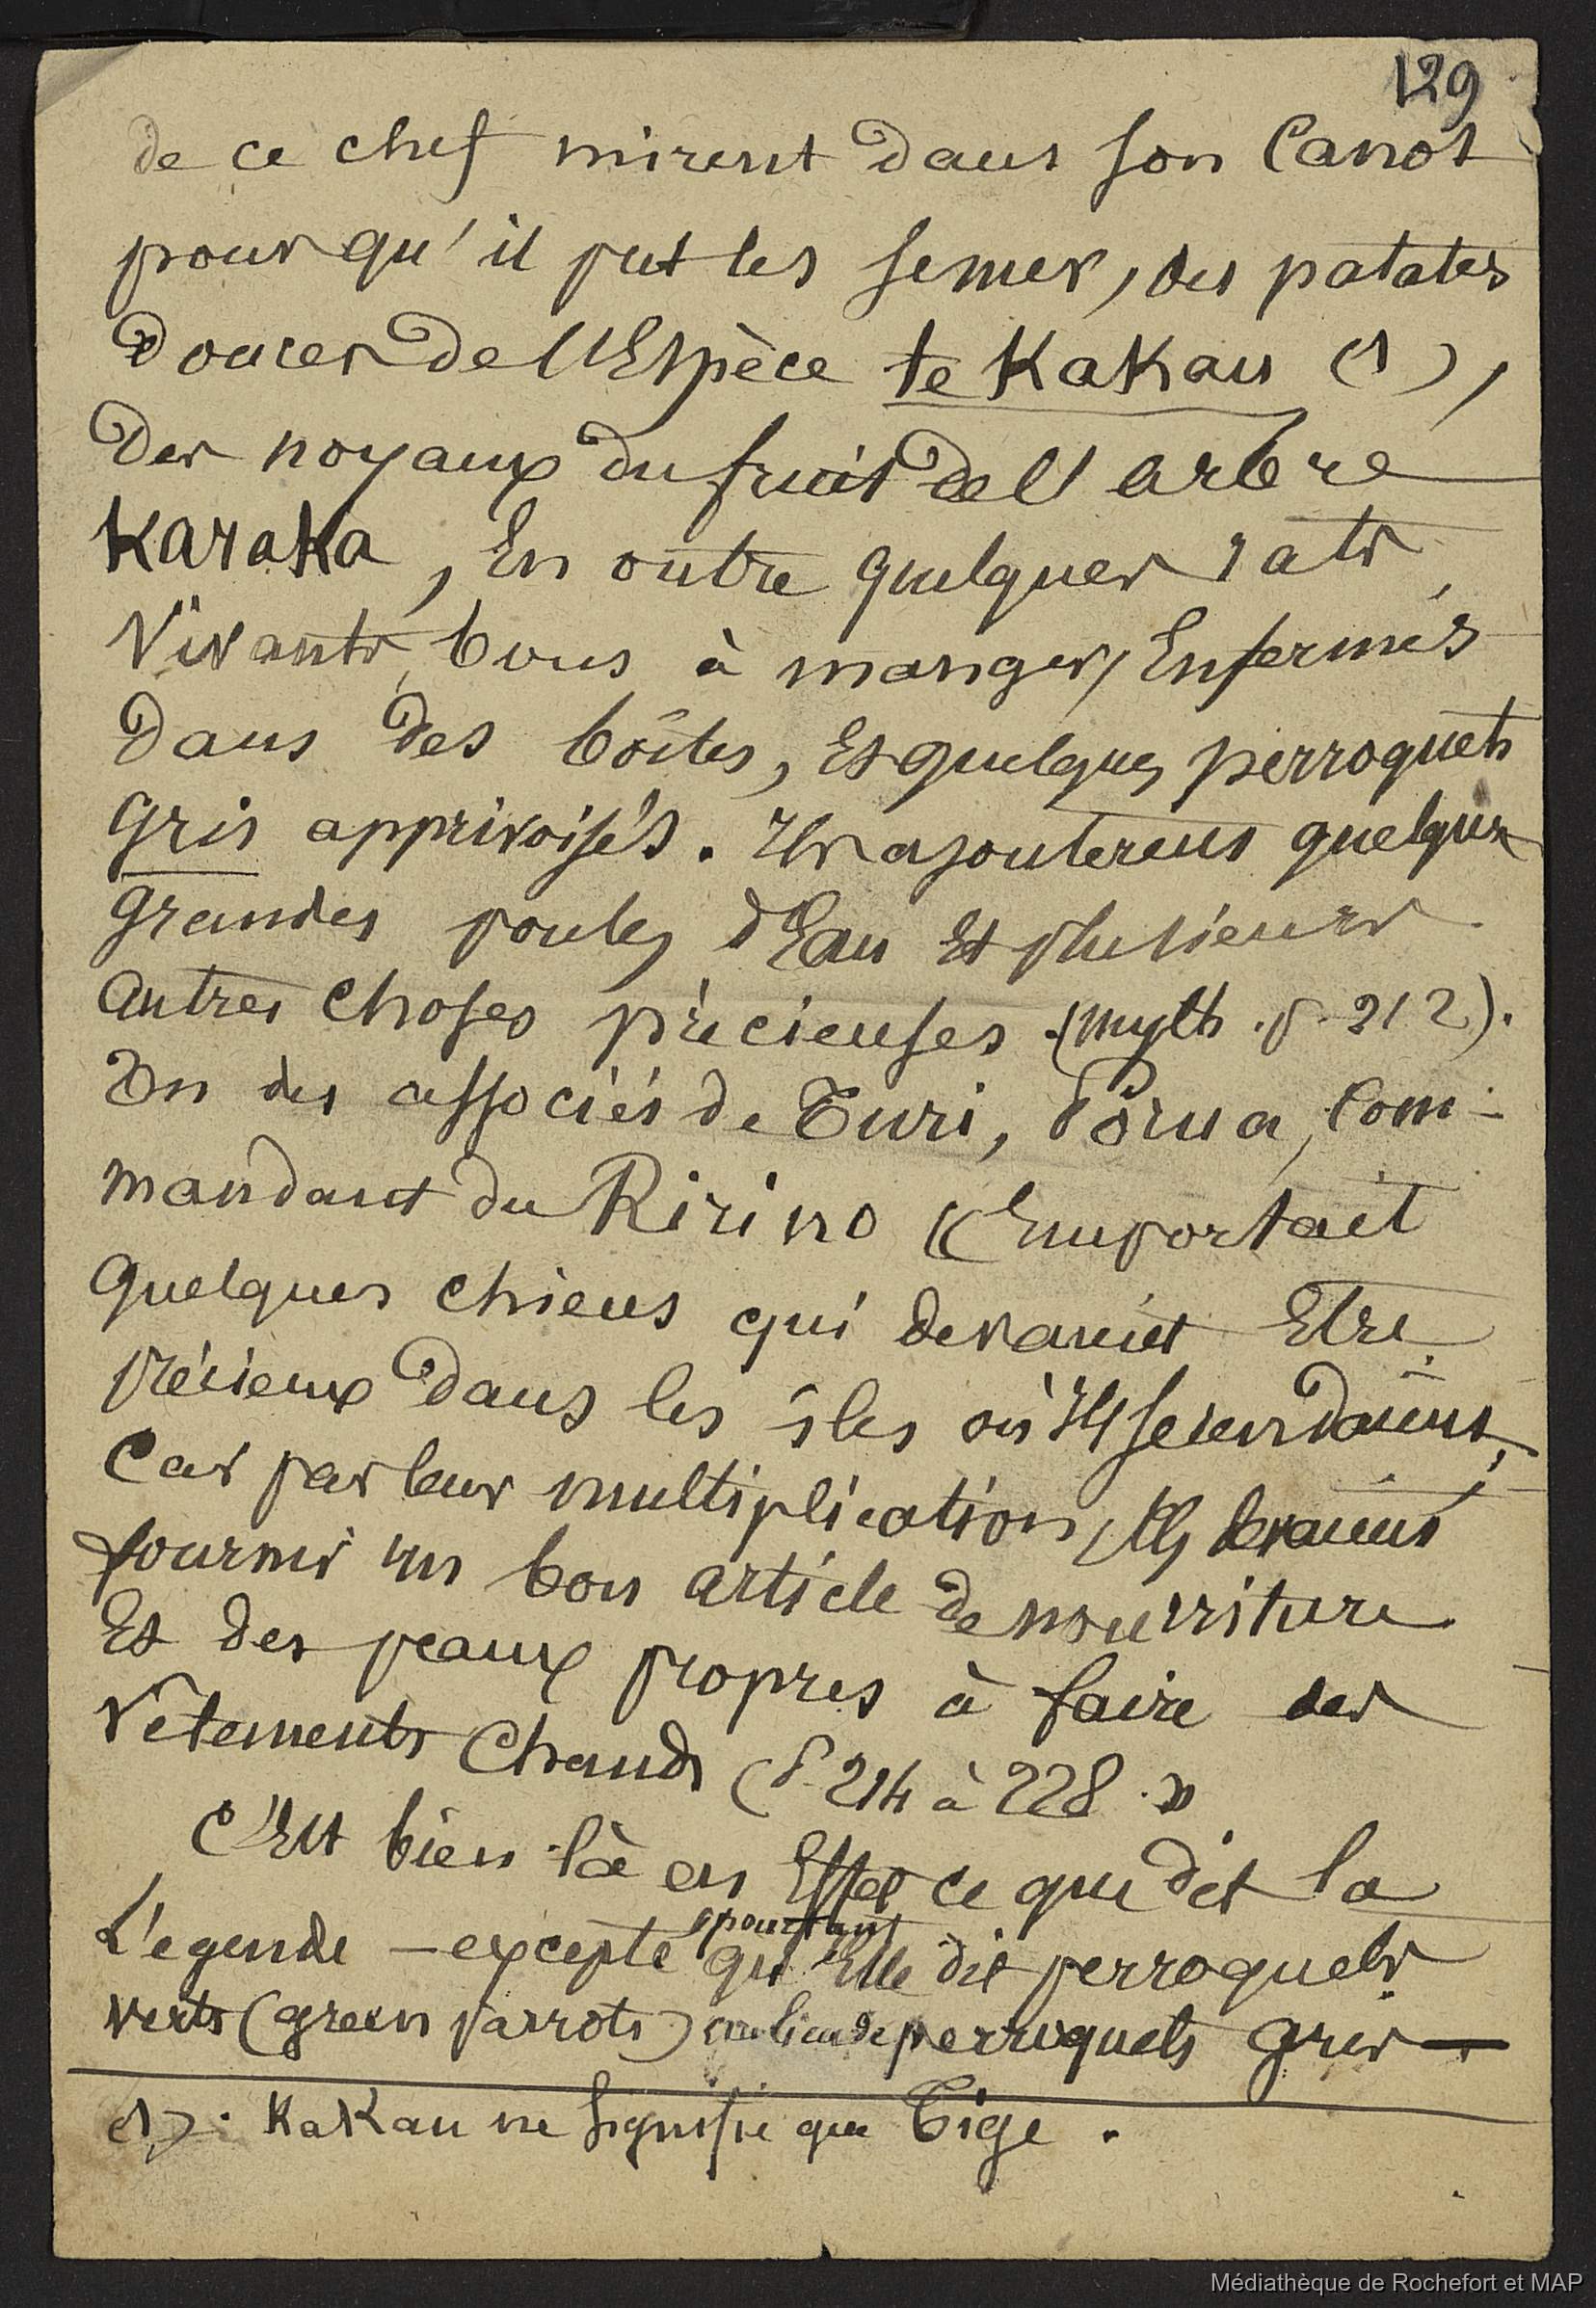 129
de ce chef mirent dans son Canot
pour qu'il put les semer, des patates
douces de l'Espèce te Kakau (1),
des noyaux du fruit de l'arbre
Karaka, En outre quelques rats,
Vivants, bons à manger, Enfermés
dans des boîtes, Et quelques perroquets
gris apprivoisés. Ils ajouterent quelques
grandes poules d'Eau Et plusieurs
autres choses précieuses (myth. p. 212).
Un des associés de Turi, Pōrua, Com-
mandant du Ririno « Emportait
quelques chiens qui devaient Etre
précieux dans les îles où Ils se rendaient,
Car par leur multiplication, Ils devaient
fournir un bon article de nourriture
Et des peaux propres à faire des
Vêtements Chauds (p. 214 à 228. »
C'Est bien là en Effet ce que dit la
Légende — excepté pourtant qu'Elle dit perroquets
verts (green parrots) au lieu de perroquets gris —
(1). Kakau ne signifie que Tige.
Médiathèque de Rochefort et MAP